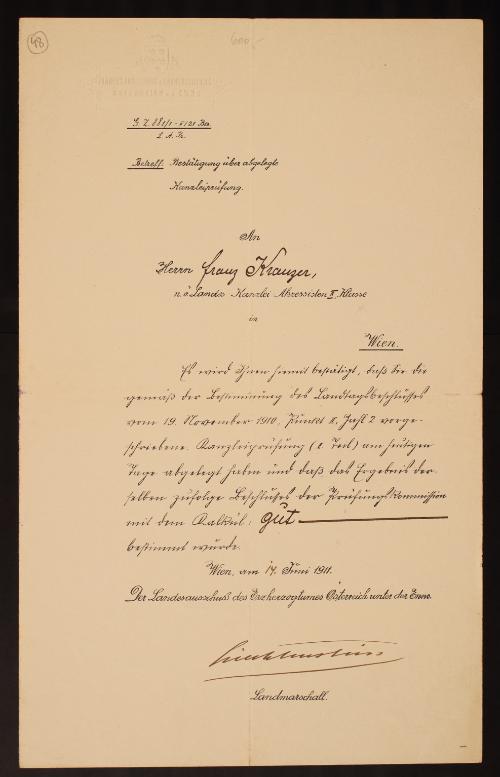 48
600,-
Betreff. Bestätigung über abgelegte
Kanzleiprüfung.
An
Herrn Franz Kranzer,
n. ö. Landes-Kanzlei II. Klasse
in
Wien.
Es wird Ihnen hiemit bestätigt, daß Sie die
gemäß der Bestimmung des Landtagsbeschlusses
vom 19. November 1910, Punkt II, Zahl 2 vorge-
schriebene Kanzleiprüfung (I. Teil) am heutigen
Tage abgelegt haben und daß das Ergebnis der-
selben zufolge Beschlusses der Prüfungskommission
mit dem Kalkül: gut
bestimmt wurde.
Wien, am 14. Juni 1911.
Der Landesausschuss des Erzherzogtumes Österreich unter der Enns.
Liechtenstein
Landmarschall.